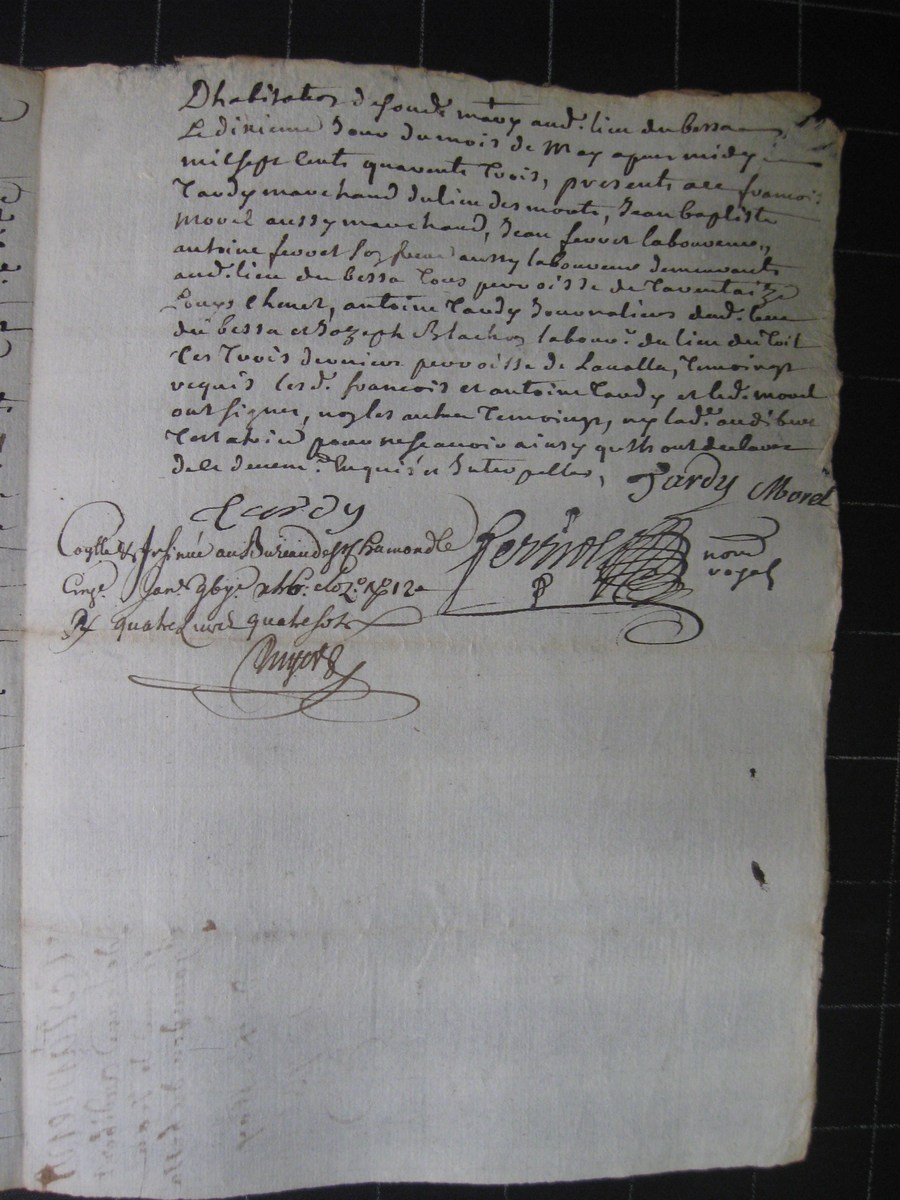 Dhabitation desond.t mary aud.t lieu du bessa
Le dixieme Jour du mois de May apres midy
mil sept cents quarente trois, presents s.rs francois
Tardy marchand du lieu des monts, Jean baptiste
Morel aussy marchand, Jean ferret laboureur,
antoine ferret son frere aussy laboureur demeurants
aud.t lieu du bessa tous parroisse de Tarentaize
Louys Chenet, antoine Tardy Journaliers dud.t lieu
du bessa et Jozeph Blachon labour.r du lieu du Toit
Ces trois derniers parroisse de Lavalla, temoings
requis lesd.ts francois et antoine Tardy et led.t morel
ont signes, non les autres temoings, ny lad.te audibert
Testatrice pour ne scavoir ainsy quils ont declaré
de ce deuem.t Enquis et Interpelles,
Tardy Morel
Tardy
not.re
royal
Con.lle & Insinué au Bureau de S.t Chamond le
quatre Livres quatre sols